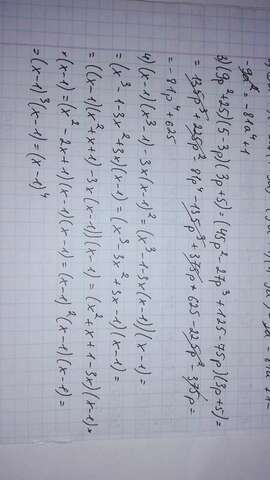 -9a² - 81a⁴ + 1
3) (9p² + 25)(5 - 3p)(3p + 5) = (45p² - 27p³ + 125 - 75p)(3p + 5) =
= 135p³ + 225p² - 81p⁴ - 135p³ + 375p + 625 - 225p² - 375p =
= -81p⁴ + 625
4) (x - 1)(x³ - 1) - 3x(x - 1)² = (x³ - 1 - 3x(x - 1))(x - 1) =
= (x³ - 1 - 3x² + 3x)(x - 1) = (x³ - 3x² + 3x - 1)(x - 1) =
= ((x - 1)(x² + x + 1) - 3x(x - 1))(x - 1) = (x² + x + 1 - 3x)(x - 1) ×
× (x - 1) = (x² - 2x + 1)(x - 1)(x - 1) = (x - 1)²(x - 1)(x - 1) =
= (x - 1)³(x - 1) = (x - 1)⁴